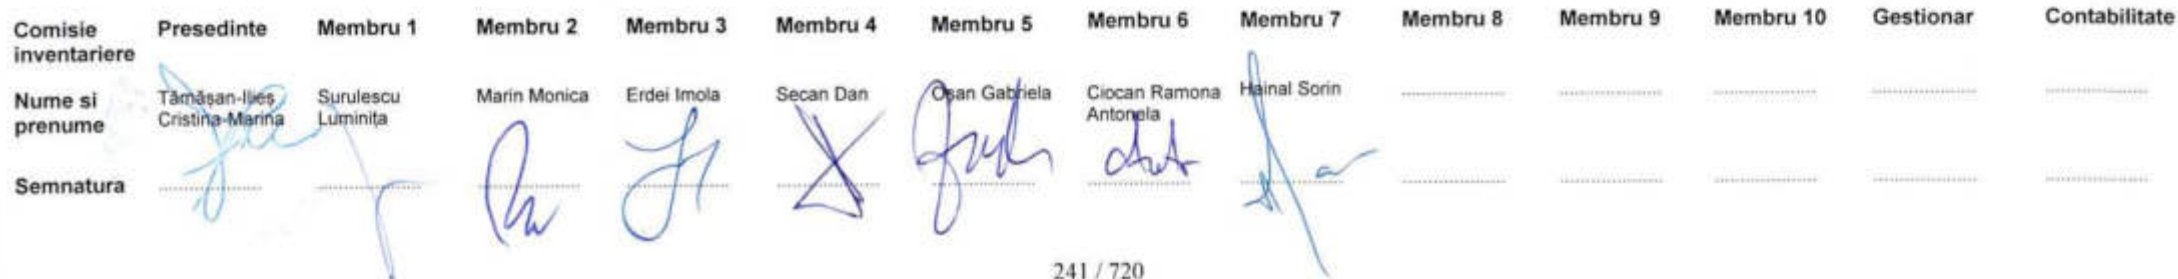 Comisie inventariere Presedinte Membru 1 Membru 2 Membru 3 Membru 4 Membru 5 Membru 6 Membru 7 Membru 8 Membru 9 Membru 10 Gestionar Contabilitate
Nume si prenume Tămășan-Ilieș Cristina-Marina Surulescu Luminița Marin Monica Erdei Imola Secan Dan Oșan Gabriela Ciocan Ramona Antonela Hainal Sorin
Semnatura
241 / 720